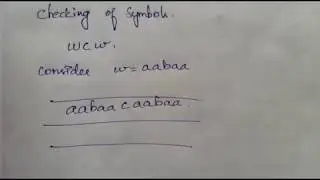 Checking of Symbols.
w c w.
Consider w = aabaa
aabaa c aabaa.